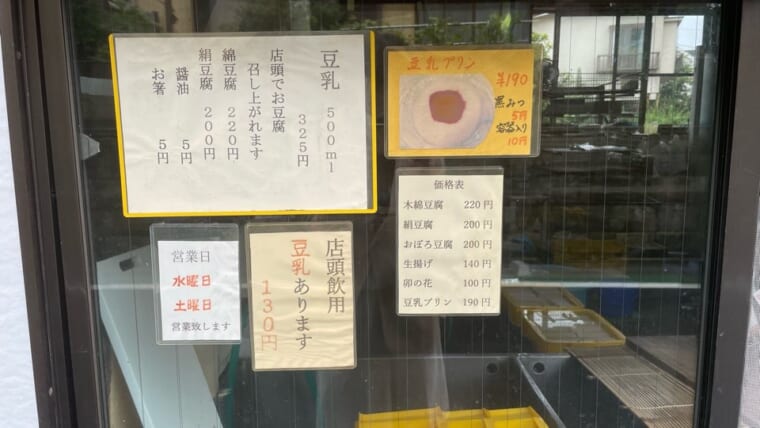 豆乳 500ml
325円
店頭でお豆腐
召し上がれます
綿豆腐 220円
絹豆腐 200円
醤油 5円
お箸 5円
豆乳プリン
¥190
黒みつ
5円
容器入り
10円
価格表
木綿豆腐 220円
絹豆腐 200円
おぼろ豆腐 200円
生揚げ 140円
卯の花 100円
豆乳プリン 190円
営業日
水曜日
土曜日
営業致します
店頭飲用
豆乳あります
130円